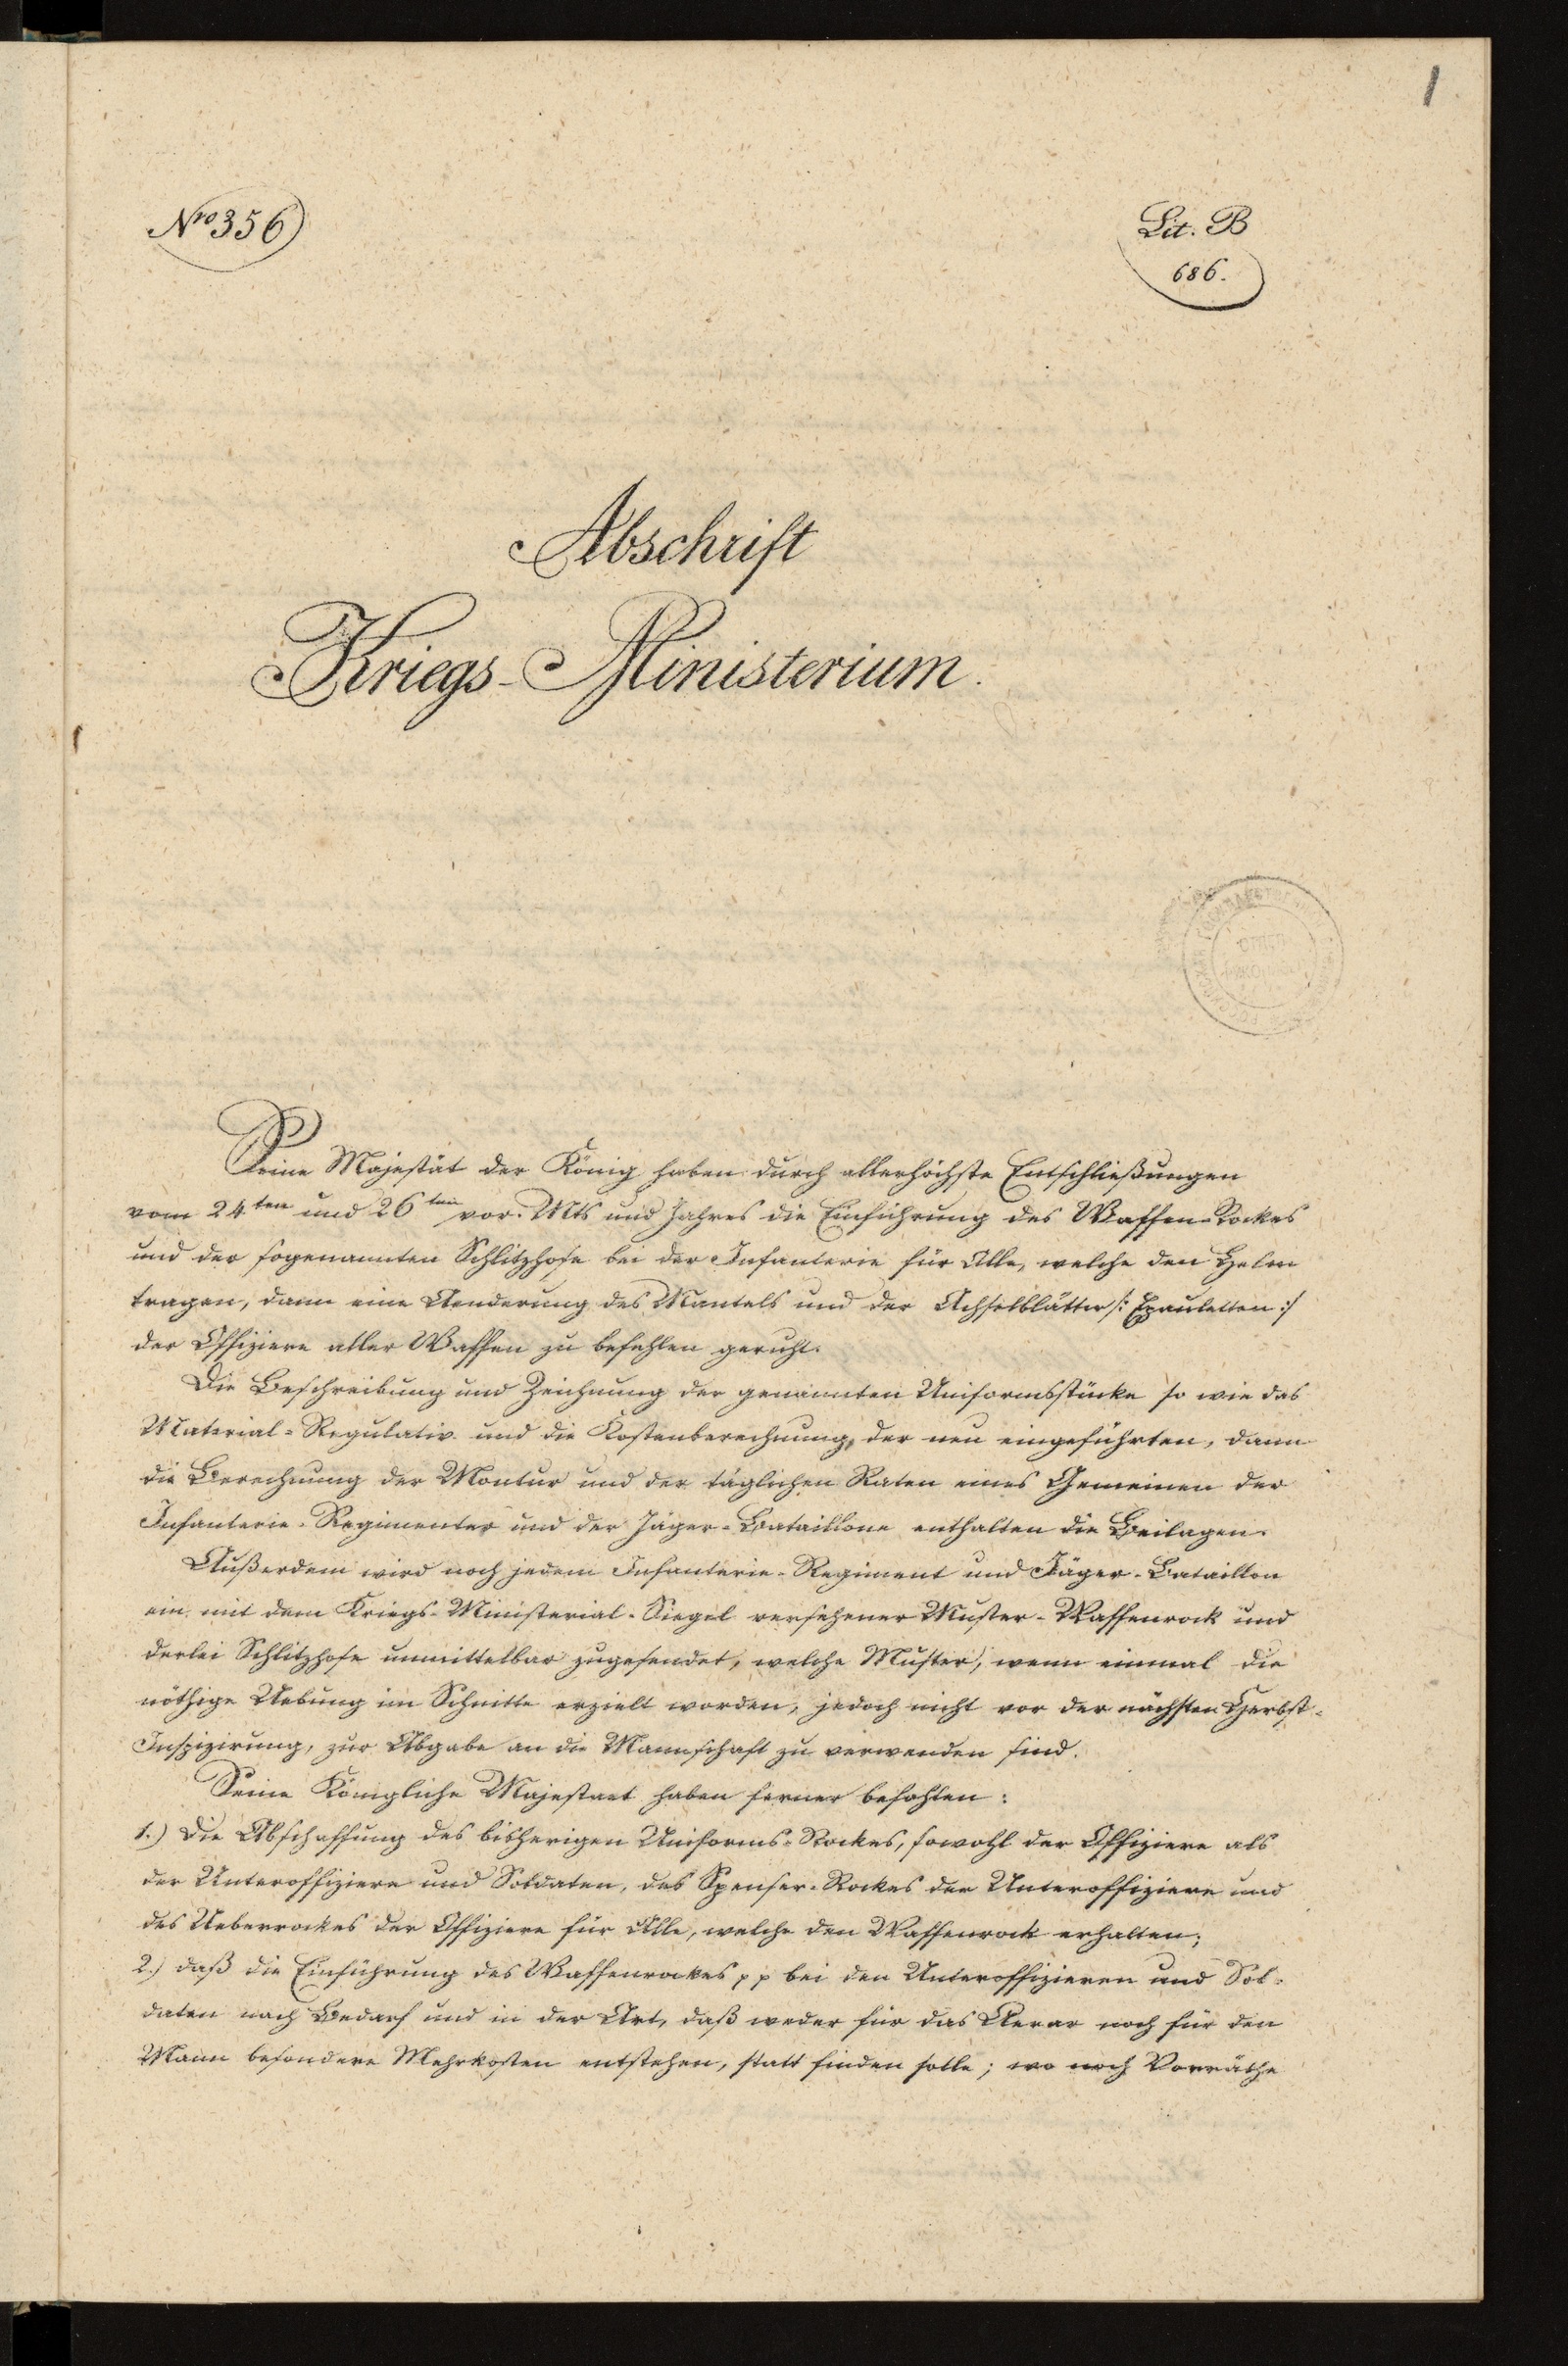 1
Nro 356
Lit. B
686.
Abschrift
Kriegs-Ministerium.
Seine Majestät der König haben durch allerhöchste Entschließungen
vom 24ten und 26ten vor. Mts und Jahres die Einführung des Waffen-Rockes
und der sogenannten Schlitzhose bei der Infanterie für Alle, welche den Helm
tragen, dann eine Aenderung des Mantels und der Achselblätter /: Epauletten :/
der Offiziere aller Waffen zu befehlen geruht.
Die Beschreibung und Zeichnung der genannten Uniformsstücke so wie das
Material-Regulativ und die Kostenberechnung, der neu eingeführten, dann
die Berechnung der Montur und der täglichen Raten eines Gemeinen der
Infanterie-Regimenter und der Jäger-Bataillone enthalten die Beilagen.
Außerdem wird noch jedem Infanterie-Regiment und Jäger-Bataillon
ein mit dem Kriegs-Ministerial-Siegel versehener Muster-Waffenrock und
derlei Schlitzhose unmittelbar zugesendet, welche Muster, wenn einmal die
nöthige Uebung im Schnitte erzielt worden, jedoch nicht vor der nächsten Herbst-
Inspizirung, zur Abgabe an die Mannschaft zu verwenden sind.
Seine Königliche Majestaet haben ferner befohlen:
1.) Die Abschaffung des bisherigen Uniforms-Rockes, sowohl der Offiziere als
der Unteroffiziere und Soldaten, des Spenser-Rockes der Unteroffiziere und
des Ueberrockes der Offiziere für Alle, welche den Waffenrock erhalten;
2.) daß die Einführung des Waffenrockes pp bei den Unteroffizieren und Sol-
daten nach Bedarf und in der Art, daß weder für das Aerar noch für den
Mann besondere Mehrkosten entstehen, statt finden solle; wo noch Vorräthe